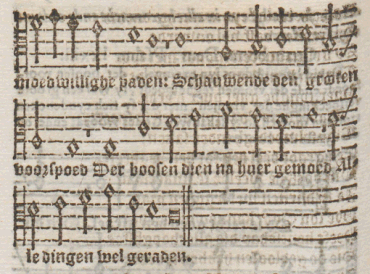 moedwillighe paden: Schauwende den grooten
voorspoed Der boosen dien na huer gemoed Al-
le dingen wel geraden.